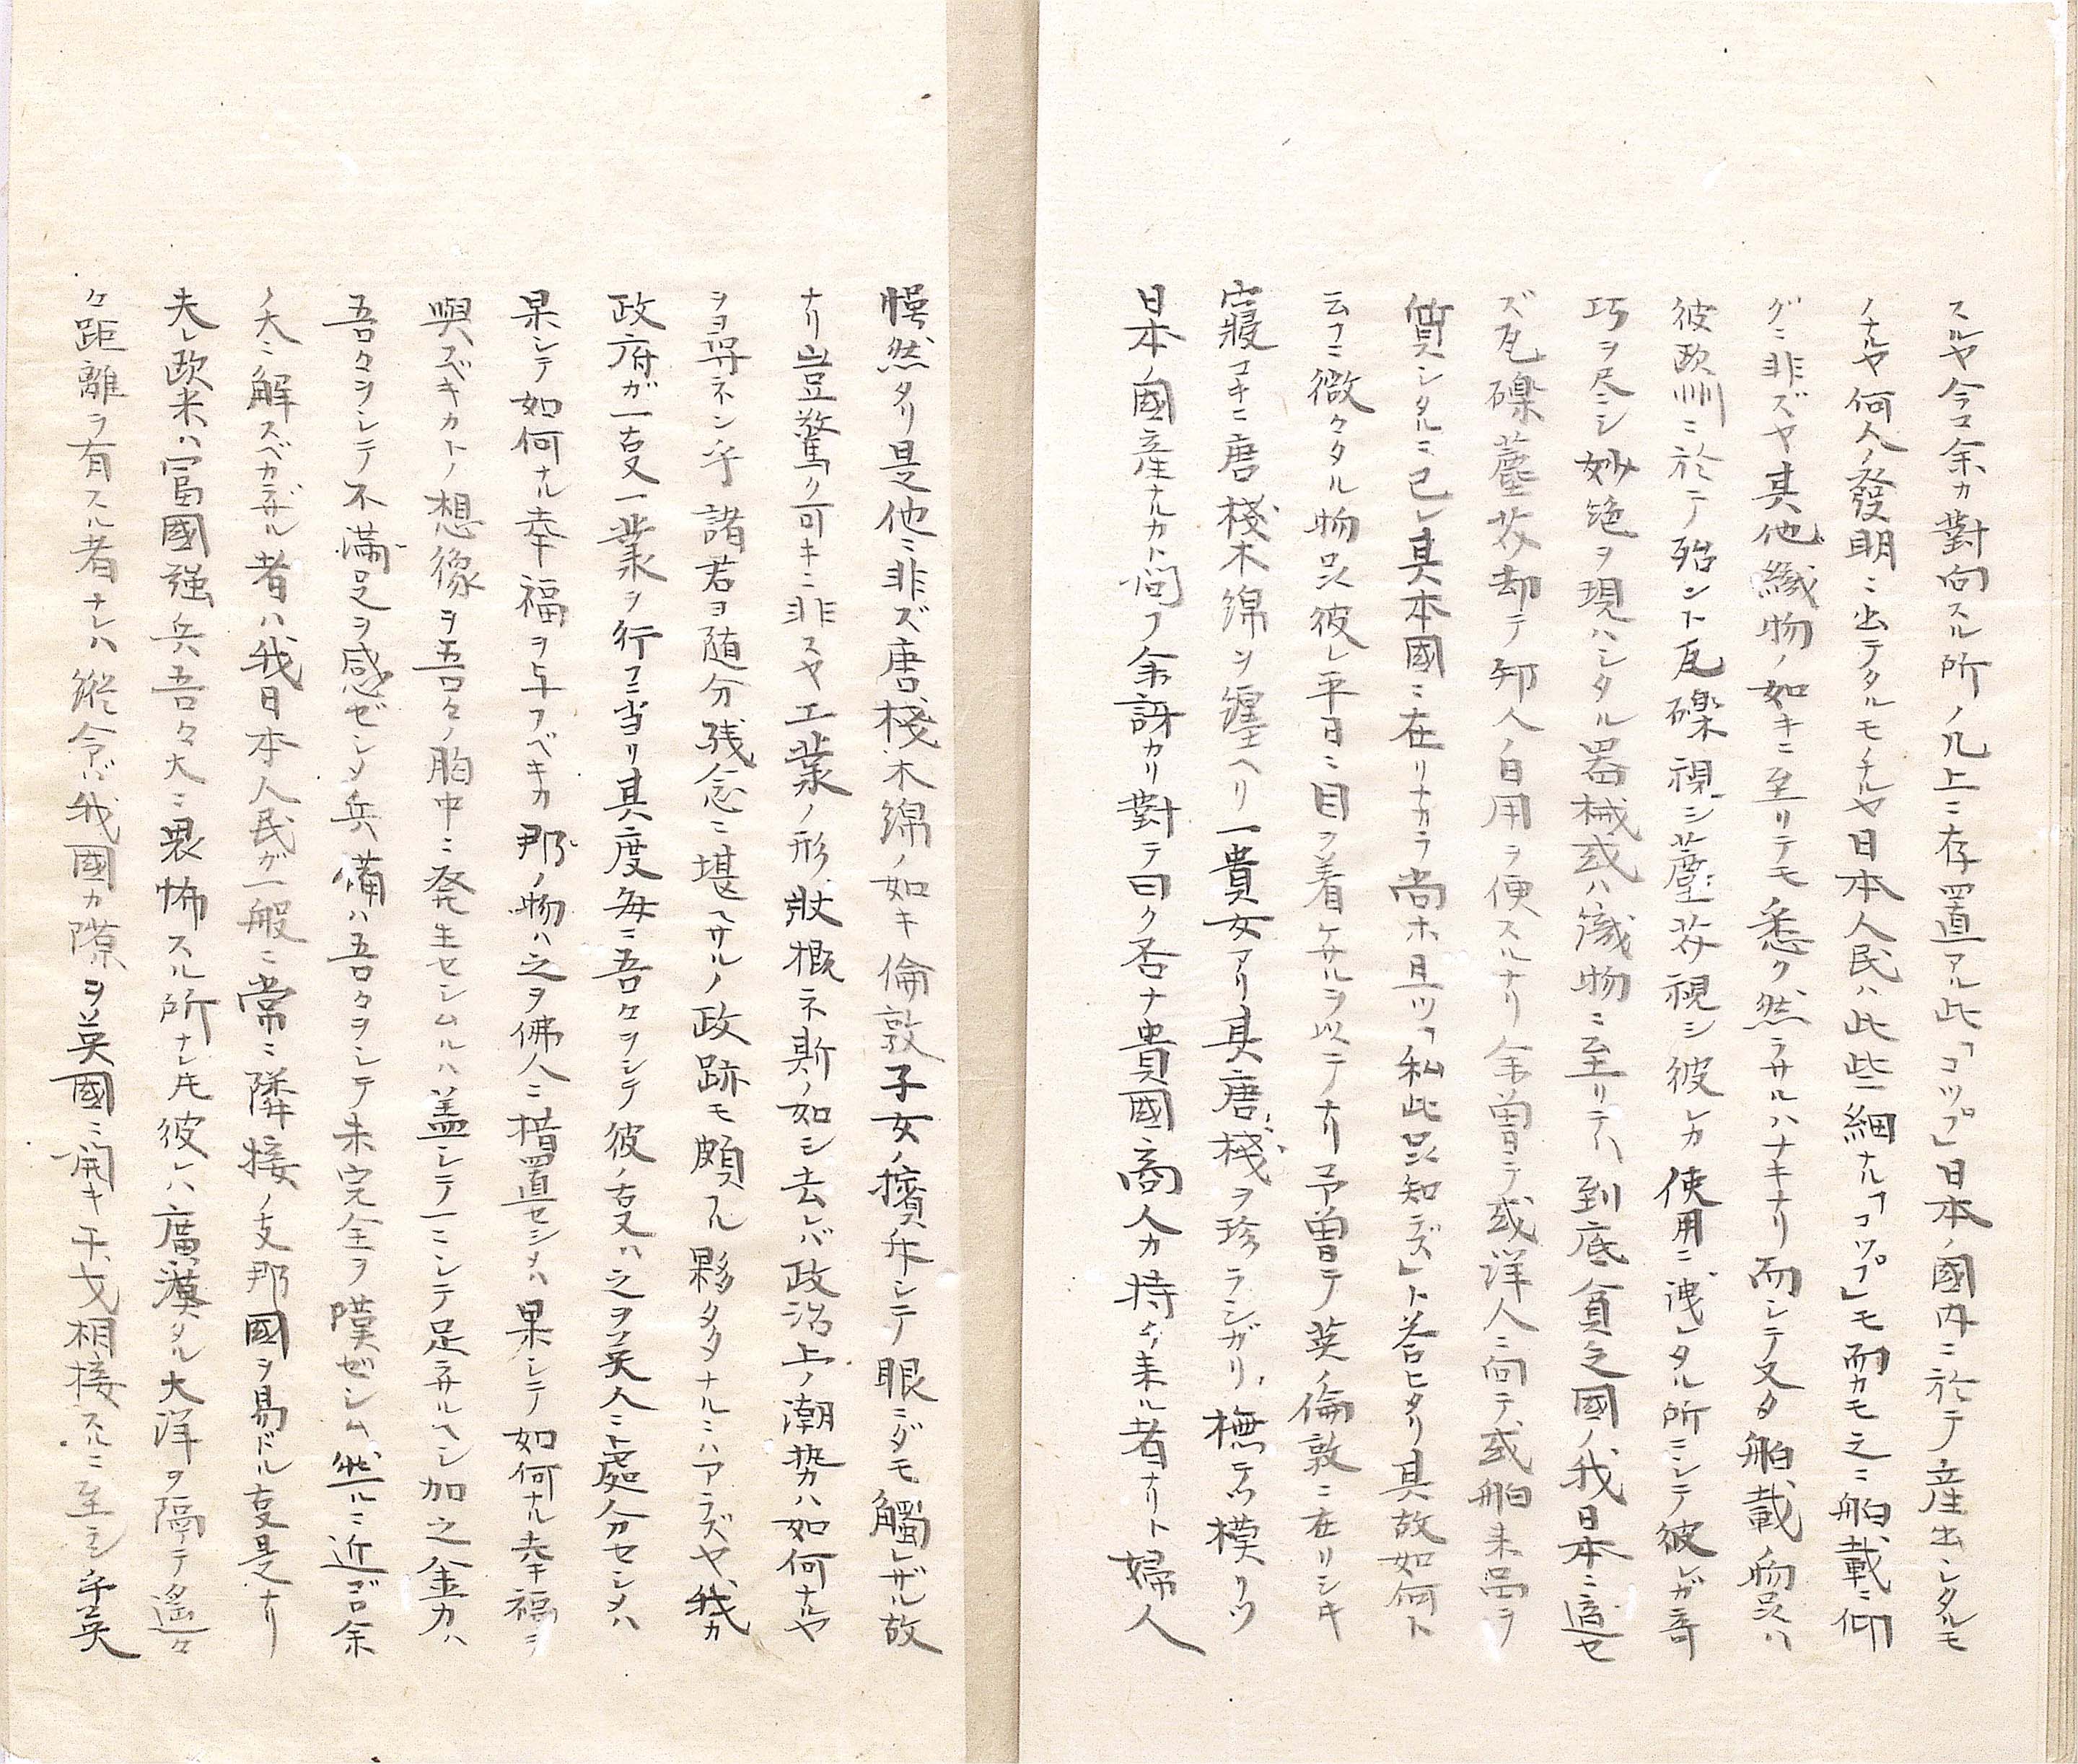 スルヤ今マ余カ對向スル所ノ几上ニ存置アル此「コップ」日本ノ國内ニ於テ産出シタルモ
ノナルヤ何人ノ發明ニ出テタルモノナルヤ日本人民ハ此些細ナル「コップ」モ而カモ之ニ舶載ニ仰
グニ非ズヤ其他織物ノ如キニ至リテモ悉ク然ラサルハナキナリ而シテ又タ舶載ノ物品ハ
彼歐州ニ於テ殆ント瓦礫視シ塵芥視シ彼レカ使用ニ洩レタル所ニシテ彼レガ奇
巧ヲ尽シ妙絶ヲ現ハシタル器械或ハ織物ニ至リテハ到底貧乏國ノ我日本ニ適セ
ズ瓦礫塵芥却テ邦人ノ日用ヲ便スルナリ余曽テ或洋人ニ向テ或舶来品ヲ
質シタルニ己レ其本國ニ在リナカラ尚ホ且ツ「私此品知デズ」ト答ヒタリ其故如何ト
云フニ微々タル物品彼レ平日ニ目ヲ着ケサルヲ以テナリ予曽テ英ノ倫敦ニ在リシキ
寝コキニ唐棧木綿ヲ纒ヘリ一貴女アリ其唐棧ヲ珍ラシガリ、撫テツ模リツ
日本ノ國産ナルカト問フ余訝カリ對テ曰ク否ナ貴國商人カ持チ来ル者ナリト婦人
愕然タリ是他ニ非ズ唐棧木綿ノ如キ倫敦子女ノ擯斥シテ眼ニダモ觸レザル故
ナリ豈驚ク可キニ非スヤ工業ノ形状概ネ斯ノ如シ去レバ政治上ノ潮勢ハ如何ナルヤ
ヲ尋ネン乎諸君ヨ随分残念ニ堪ヘサルノ政跡モ頗フル夥タタナルニハアラズヤ、我カ
政府ガ一事一業ヲ行フニ当リ其度毎ニ吾々ヲシテ彼ノ事ハ之ヲ英人ニト處分セシメハ
果シテ如何ナル幸福ヲ与フベキカ那ノ物ハ之ヲ佛人ニ措置セシメハ果シテ如何ナル幸福ヲ
與フベキカトノ想像ヲ吾々ノ胸中ニ発生セシムルハ蓋シテ一ニシテ足ラザルヘシ加之金力ハ
吾々ヲシテ不満足ヲ感ゼシメ兵備ハ吾々ヲシテ未完全ヲ嘆ゼシム然ルニ近ゴロ余
ノ大ニ解スベカラザル者ハ我日本人民ガ一般ニ常ニ隣接ノ支那國ヲ易ドル事是ナリ
夫レ欧米ハ富國強兵吾々大ニ畏怖スル所ナレ𪜈彼レハ廣漠タル大洋ヲ隔テ遙々
ケ距離ヲ有スル者ナレハ縦令ヒ我國カ隙ヲ英國ニ開キ干戈相接スルニ至ラシ乎英